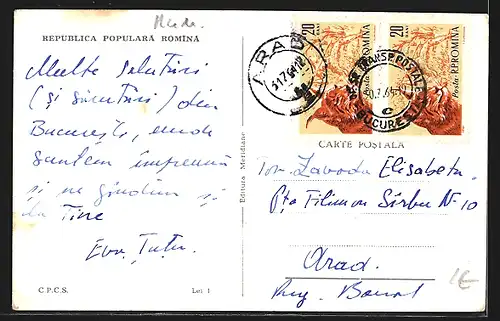 Nude.
REPUBLICA POPULARĂ ROMÎNA
Multe salutări
(și sărutări) din
București, unde
suntem împreună
și ne gîndim și
la Tine
C.P.C.S.
Lei 1
Editura Meridiane
ARAD
20 BANI
Posta R.P.ROMINA
20 BANI
Posta R.P.ROMINA
BUCUREȘTI
CARTE POȘTALĂ
Tov. Lavoda Elisabeta
Pța Filimon Sîrbu N° 10
Arad.
Reg. Banat
1€